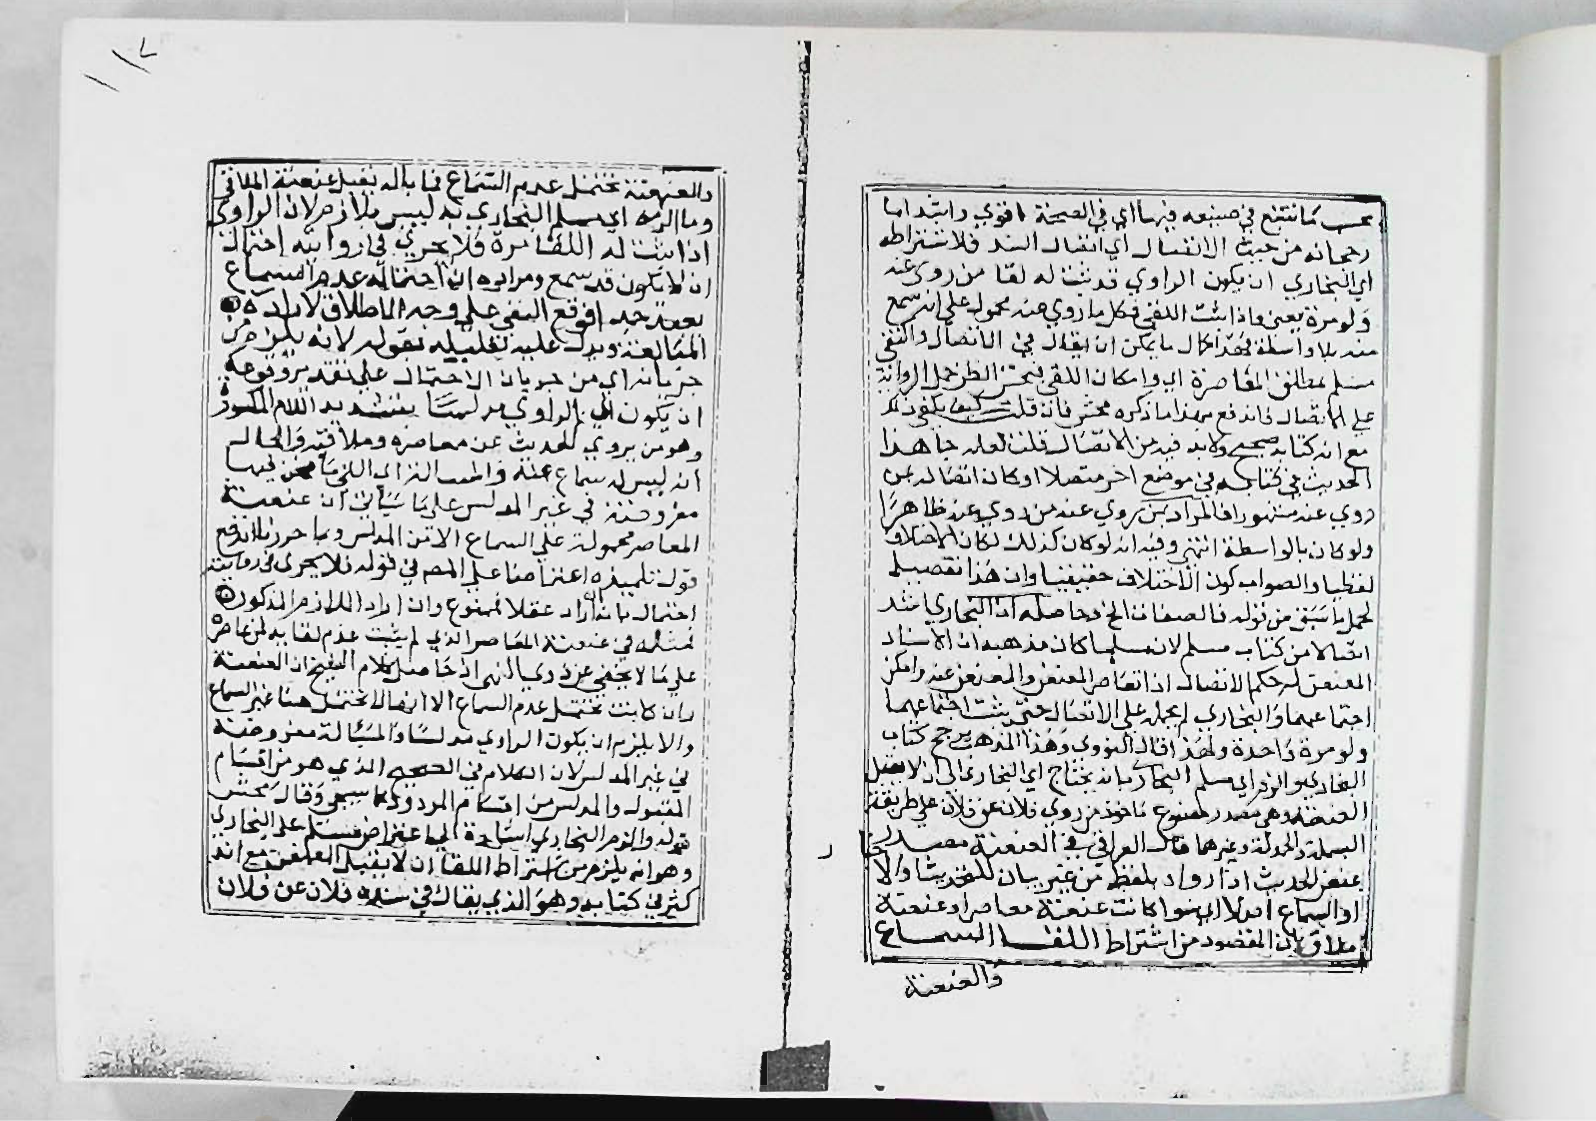 بحسب ما نتتبع في صنيعه فيهما اي في الصحة اقوي واشد اما
رجحانه من حيث الاتصال اي اتصال السند فلاشتراطه
اي البخاري ان يكون الراوي قد ثبت له لقا من روي عنه
ولو مرة يعني فاذا ثبت اللقي فكل ما روي عنه محمول علي انه سمع
منه بلا واسطة فهذا كمال ما يمكن ان يقال في الاتصال واكتفي
مسلم بمطلق المعاصرة اي وامكان اللقي فبحسن الظن حمل الرواية
علي الاتصال فاندفع بهذا ما ذكره محش فان قلت كيف يكفي ذلك
مع انه كتابه صحيح ولابد فيه من الاتصال قلت لعله جا هذا
الحديث في كتابه في موضع اخر متصلا او كان اتصاله بمن
روي عنه مشهورا فالمراد بمن روي عنه من روي عنه ظاهرا
ولو كان بالواسطة انتهي وفيه انه لو كان كذلك لكان الاختلاف
لفظيا والصواب كون الاختلاف حقيقيا وان هذا تفصيل
لمجمل ما سبق من قوله فالصفات الخ وحاصله ان البخاري اشد
اتصالا من كتاب مسلم لان مسلما كان مذهبه ان الاسناد
المعنعن له حكم الاتصال اذا تعاصر المعنعن والمعنعن عنه وامكن
اجتماعهما والبخاري لم يحمله علي الاتصال حتي يثبت اجتماعهما
ولو مرة واحدة ولهذا قال النووي وهذا المذهب يرجح كتاب
البخاري والزم اي مسلم البخاري بانه يحتاج اي البخاري الي ان لا يقبل
العنعنة وهي مصدر مصنوع ماخوذ من روي فلان عن فلان علي طريقة
البسملة والحمدلة وغيرهما قال العراقي في العنعنة مصدر
عنعن الحديث اذا رواه بلفظ عن من غير بيان للتحديث او الا
او السماع اصلا اي سوا كانت عنعنة معاصر او عنعنة
ملاق لان المقصود من اشتراط اللقا السماع
والعنعنة
والعنعنة تحتمل عدم السماع فما باله يقبل عنعنة الملاقي
وما الزمه اي مسلم البخاري به ليس بلازم لان الراوي
اذا ثبت له اللقا مرة فلا يجري في رواياته احتمال
ان لا يكون قد سمع ومراده ان احتماله عدم السماع
بعيد جدا فوقع النفي علي وجه الاطلاق لارادة
المبالغة ويدل عليه تعليله بقوله لانه يلزم من
جريانه اي من جريان الاحتمال علي تقدير وقوعه
ان يكون اي الراوي مدلسا بتشديد اللام المكسورة
وهو من يروي الحديث عن معاصره وملاقيه والحال
انه ليس له سماع عنه والمسالة اي اللتي ما نحن فيها
مفروضة في غير المدلس علي ما سياتي ان عنعنة
المعاصر محمولة علي السماع الا من المدلس وبما حررنا اندفع
قول تلميذه اعتراضا علي المص في قوله فلا يجري في رواياته
احتمال بانه ان اراد عقلا فممنوع وان اراد اللازم المذكور
فمثله في عنعنة المعاصر الذي لم يثبت عدم لقايه لمن عاصره
علي ما لا يخفي عن ذوي النهي اذ حاصل كلام الشيخ ان العنعنة
وان كانت تحتمل عدم السماع الا انها لا تحتمل هنا غير السماع
والا يلزم ان يكون الراوي مدلسا والمسالة مفروضة
في غير المدلس لان الكلام في الصحيح الذي هو من اقسام
المقبول والمدلس من اقسام المردود كما سيجي وقال محش
قوله والزم البخاري اشارة الي اعتراض مسلم علي البخاري
وهو انه يلزم من اشتراط اللقا ان لا يقبل العنعنة مع انه
كثر في كتابه وهو الذي يقال في سنده فلان عن فلان